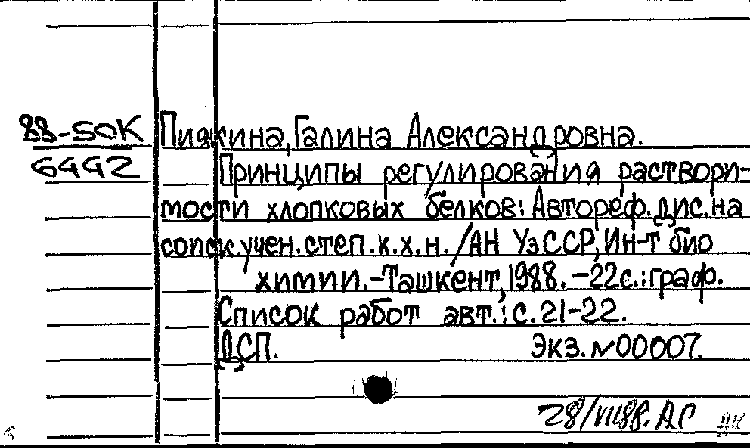 88-50К Пиякина, Галина Александровна.
6442 Принципы регулирования раствори-
мости хлопковых белков: Автореф. дис. на
соиск. учен. степ. к.х.н. /АН УзССР, Ин-т био
химии.-Ташкент, 1988. -22с.: граф.
Список работ авт.: с. 21-22.
ДСП. Экз. №00007.
28/VII88. АС